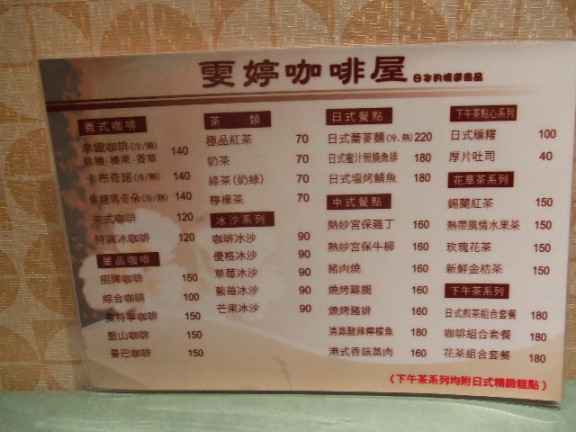 雯婷咖啡屋
義式咖啡
拿鐵咖啡(冷/熱) 140
焦糖、榛果、香草
卡布奇諾(冷/熱) 140
焦糖瑪奇朵(冷/熱) 150
美式咖啡 120
特調冰咖啡 120
單品咖啡
招牌咖啡 150
綜合咖啡 100
曼特寧咖啡 150
藍山咖啡 150
曼巴咖啡 150
茶 類
極品紅茶 70
奶茶 70
綠茶(奶綠) 70
檸檬茶 70
冰沙系列
咖啡冰沙 90
優格冰沙 90
草莓冰沙 90
藍莓冰沙 90
芒果冰沙 90
日式餐點
日式蕎麥麵(冷.熱) 220
日式蜜汁照燒魚排 180
日式塩烤鯖魚 180
中式餐點
熱炒宮保雞丁 160
熱炒宮保牛柳 160
豬肉燒 160
燒烤雞腿 160
燒烤豬排 160
清蒸酸辣檸檬魚 180
港式香菇蒸肉 160
下午茶點心系列
日式麻糬 100
厚片吐司 40
花草茶系列
錫蘭紅茶 150
熱帶風情水果茶 150
玫瑰花茶 150
新鮮金桔茶 150
下午茶系列
日式煎茶組合套餐 180
咖啡組合套餐 180
花茶組合套餐 180
(下午茶系列均附日式精緻糕點)